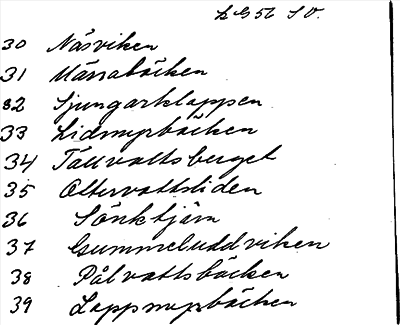 LG 56 SV.
30 Näsviken
31 Märrabäcken
32 Ljungarklappen
33 Lidmyrbäcken
34 Tällvattsberget
35 Ottervattsliden
36 Sönktjärn
37 Gummeluddviken
38 Pålvattsbäcken
39 Lappmyrbäcken